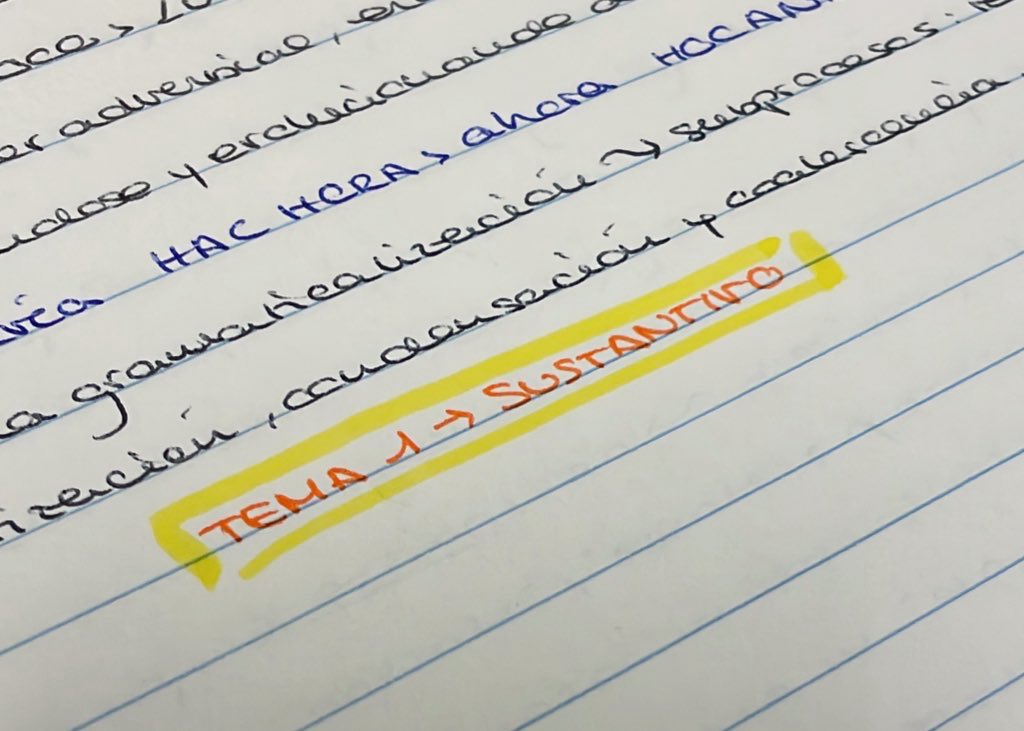 er adverbial, en
ndose y erdiciando a
HAC HORA > ahora HOC AN
a gramaticalización ~> subprocesos:
ización, condensación y coalescencia.
TEMA 1 → SUSTANTIVO